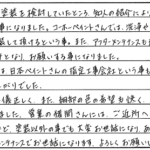 塗装を検討していたところ、知人の紹介により
事になりました。コーホーペイントさんでは、洗浄や
装して頂けるという事。また、アフターメンテナンスも
となり、お願いする事になりました。
は日本ペイントさんの指定工事店という事も
がりでした。
儀正しく、また、細部の色の希望も快く
ました。営業の横関さんには、ご近所へ
り、塗装以外の事でも大変お世話になり、あ
ンテナンスでお世話になります。よろしくお願い